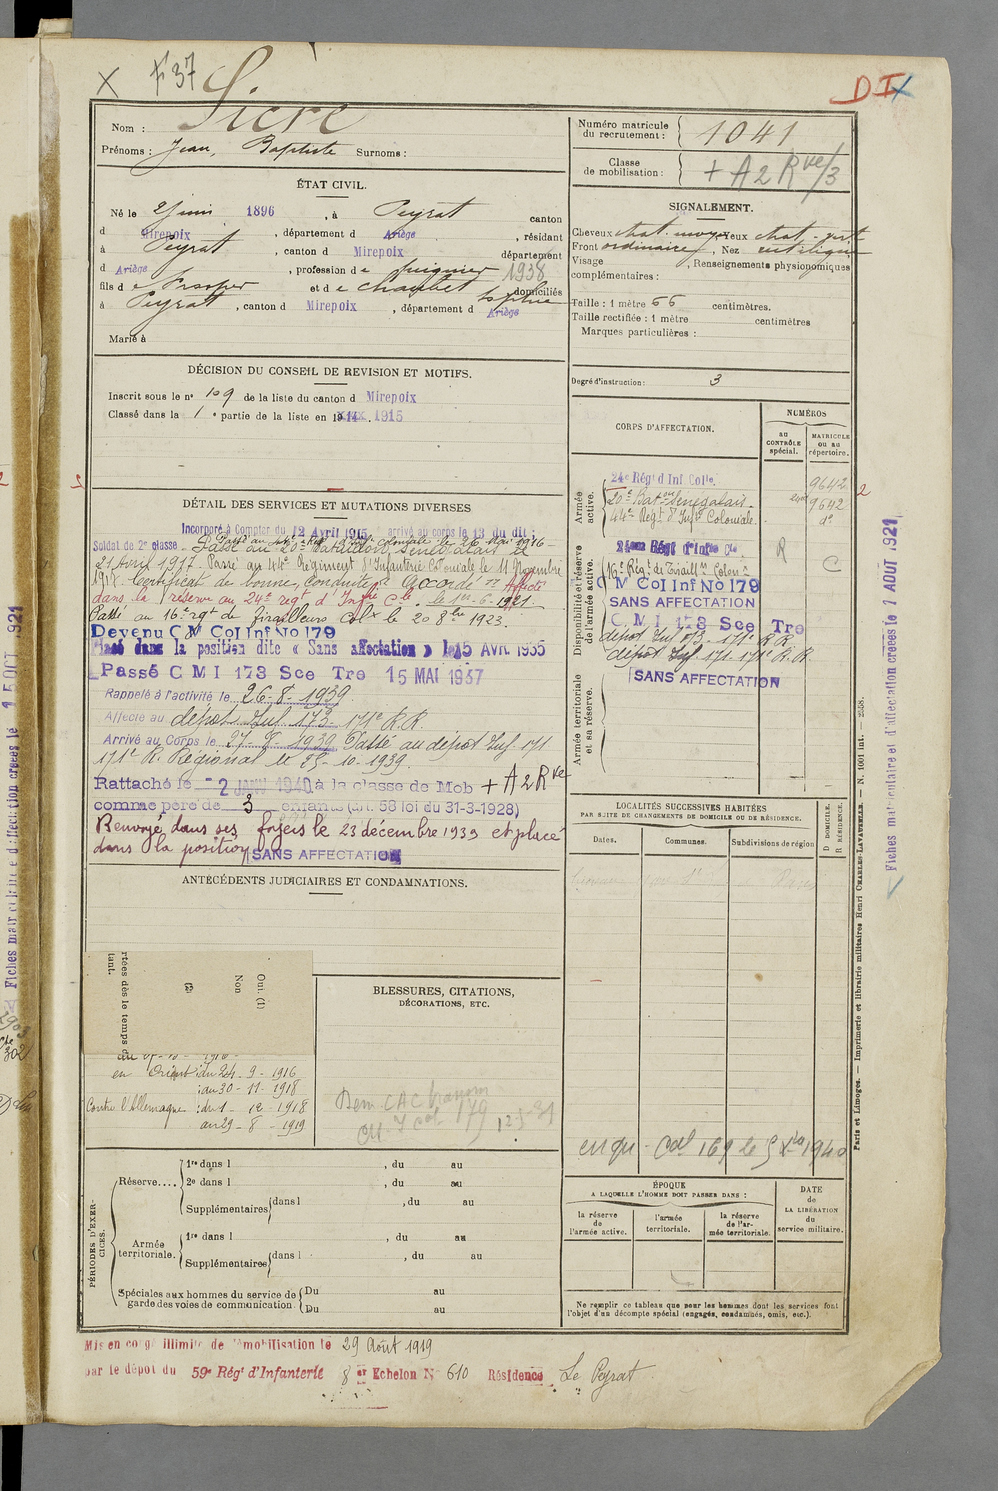 X F37
DIX
Sicre
Nom :
Prénoms : Jean, Baptiste Surnoms :
Numéro matricule du recrutement : 1041
Classe de mobilisation : + A 2 Rve/3
ÉTAT CIVIL.
Né le 2 juin 1896, à Peyrat canton
d Mirepoix, département d Ariège, résidant
à Peyrat, canton d Mirepoix département
d Ariège, profession de 1938
fils de Prosper et de Chaubet Sophie domiciliés
à Peyrat, canton d Mirepoix, département d Ariège
Marié à
SIGNALEMENT.
Cheveux chat. moyen Yeux chat. vert
Front ordinaire, Nez rectiligne
Visage , Renseignements physionomiques
complémentaires :
Taille : 1 mètre 66 centimètres.
Taille rectifiée : 1 mètre centimètres
Marques particulières :
Degré d'instruction : 3
DÉCISION DU CONSEIL DE REVISION ET MOTIFS.
Inscrit sous le n° 109 de la liste du canton d Mirepoix
Classé dans la 1e partie de la liste en 1915
DÉTAIL DES SERVICES ET MUTATIONS DIVERSES
Incorporé à Compter du 12 Avril 1915 arrivé au corps le 13 du dit :
Soldat de 2e classe.
Coloniale le 26 Mai 1916 -
Passé au 20e Bataillon Sénégalais le
21 Avril 1917. Passé au 44e Régiment d'Infanterie Coloniale le 11 Novembre
1918. Certificat de bonne conduite accordé. Affecté
dans la réserve au 24e regt d'Infrie Cle. le 1er-6-1921.
Passé au 16e rgt de Tirailleurs Colx le 20 8bre 1923.
Devenu C M Col Inf No 179
Placé dans la position dite « Sans affectation » le 15 AVR. 1935
Passé C M I 173 Sce Tre 15 MAI 1937
Rappelé à l'activité le 26-8-1939
Affecté au dépot Inf 173- 171e R.R
Arrivé au Corps le 27-8-1939 Passé au dépot Inf. 171
171e R. Régional le 25-10-1939.
Rattaché le 2 JANV 1940 à la classe de Mob + A 2 Rve
comme père de 3 enfants (art. 58 loi du 31-3-1928)
Renvoyé dans ses foyers le 23 décembre 1939 et placé
dans la position SANS AFFECTATION
CORPS D'AFFECTATION.
NUMÉROS
au CONTRÔLE spécial.
MATRICULE ou au répertoire.
Armée active.
24e Régt d'Inf Colle. 9642
20e Baton Sénégalais 9642
44e Régt d'Infie Coloniale d°
2
Disponibilité et réserve de l'armée active.
24eme Régt d'Infie Cle R
16e Régt de Tiraillrs Colonx C
C M Col Inf No 179
SANS AFFECTATION
C M I 173 Sce Tre
dépot Inf 173 - 171e R.R
dépot Inf. 171- 171e R.R.
SANS AFFECTATION
Armée territoriale et sa réserve.
LOCALITÉS SUCCESSIVES HABITÉES
PAR SUITE DE CHANGEMENTS DE DOMICILE OU DE RÉSIDENCE.
Dates. Communes. Subdivisions de région
D DOMICILE. R RÉSIDENCE.
ANTÉCÉDENTS JUDICIAIRES ET CONDAMNATIONS.
rtées dès le temps d
tant.
Oui. (1)
Non
(2)
en Orient : du 24-9-1916
: au 30-11-1918
Contre l'Allemagne : du 1-12-1918
au 29-8-1919
BLESSURES, CITATIONS,
DÉCORATIONS, ETC.
Dem CAC
CM. I col 179
enqu - Col 169 le 5 Xbre 1940
PÉRIODES D'EXERCICES.
Réserve....
1re dans l , du au
2e dans l , du au
Supplémentaires dans l , du au
Armée territoriale.
1re dans l , du au
Supplémentaires dans l , du au
Spéciales aux hommes du service de garde des voies de communication.
Du au
Du au
ÉPOQUE
A LAQUELLE L'HOMME DOIT PASSER DANS :
la réserve de l'armée active.
l'armée territoriale.
la réserve de l'armée territoriale.
DATE de LA LIBÉRATION du service militaire.
Ne remplir ce tableau que pour les hommes dont les services font
l'objet d'un décompte spécial (engagés, condamnés, omis, etc.).
Mis en congé illimité de démobilisation le 29 Août 1919
par le dépot du 59e Régt d'Infanterie 8 er Echelon N° 610 Résidence Le Peyrat
Paris et Limoges. — Imprimerie et librairie militaires Henri CHARLES-LAVAUZELLE. — N. 1001 int. — 2558.
Fiches matriculaire et d'affectation créées le 1 AOUT 1921
Fiches matriculaire d'affection créées le 15 OCT 1921